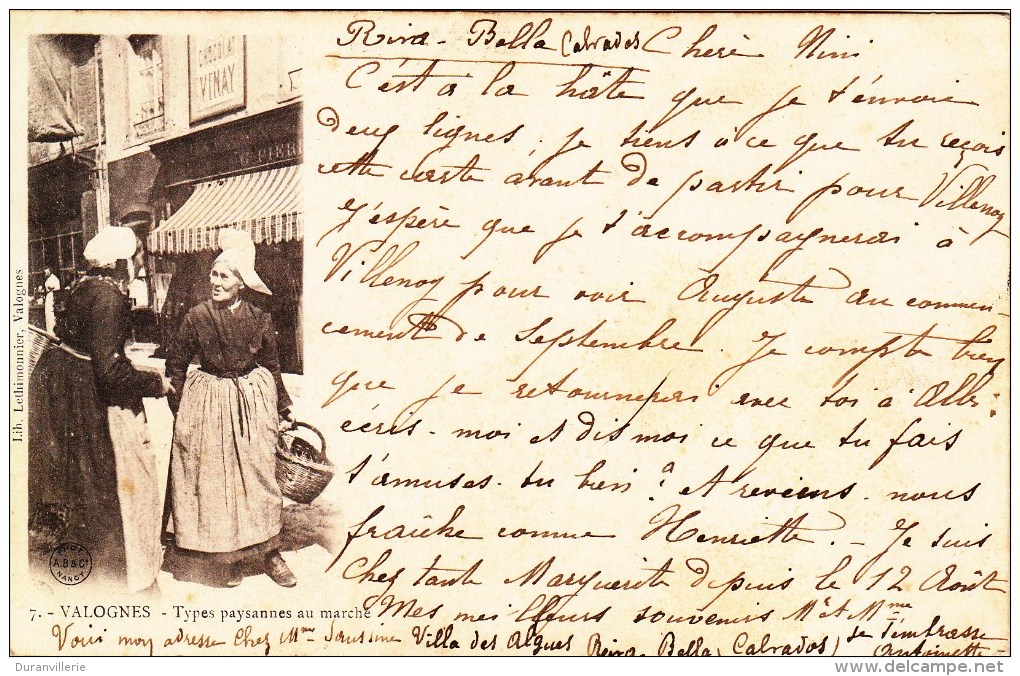 Riva-Bella Calvados Cheré Nini
C'est à la hâte que je t'envoie
deux lignes, je tiens à ce que tu reçois
cette carte avant de partir pour Villenoy
J'espère que je t'accompagnerai à
Villenoy pour voir Auguste au commen-
cement de Septembre. Je compte bien
que je retournerai avec toi à
écris-moi et dis moi ce que tu fais
t'amuses-tu bien? et reviens-nous
fraîche comme Henriette. - Je suis
chez tante Marguerite depuis le 12 Août
Mes meilleurs souvenirs Mr et Mme
Je t'embrasse
Antoinette
Voici mon adresse Chez Mme Villa des Algues Riva-Bella, Calvados,
CHOCOLAT
VINAY
PIER
Lib. Lethimonnier, Valognes
PHOT
A.B & Cie
NANCY
7. - VALOGNES - Types paysannes au marché
Duranvillerie
http://www.delcampe.net